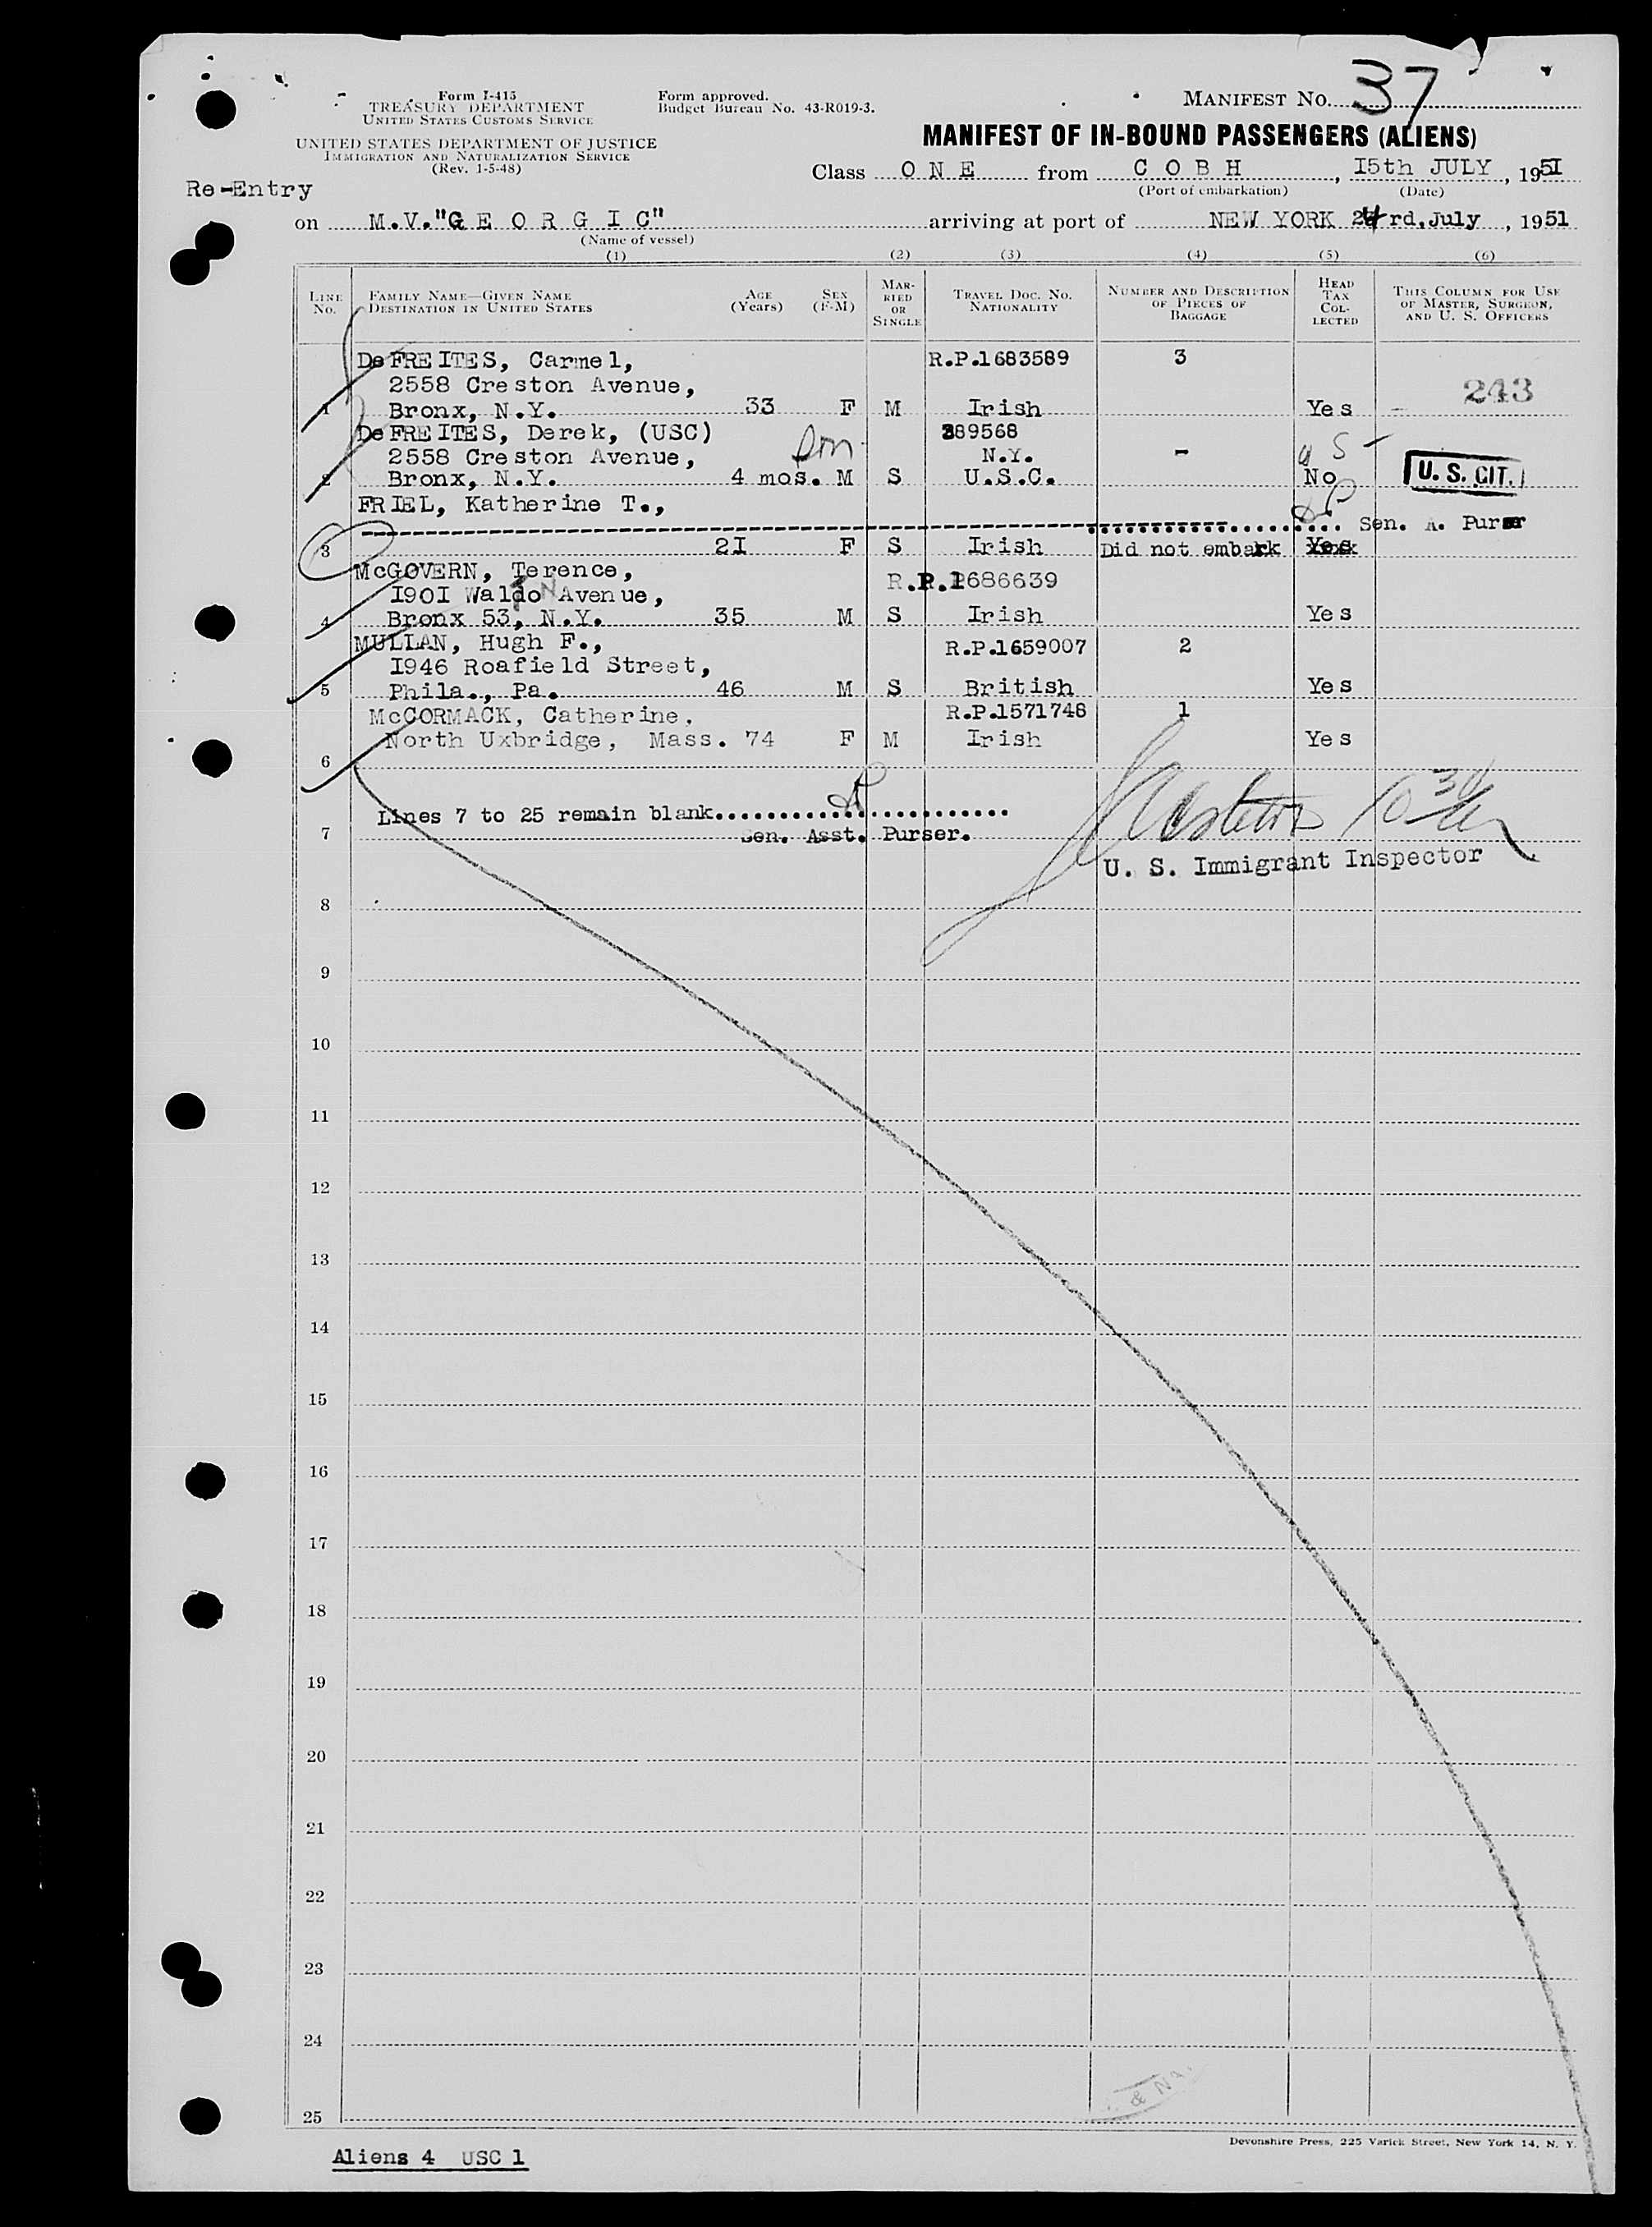 Form I-415
TREASURY DEPARTMENT
UNITED STATES CUSTOMS SERVICE
UNITED STATES DEPARTMENT OF JUSTICE
IMMIGRATION AND NATURALIZATION SERVICE
(Rev. 1-5-48)
Form approved.
Budget Bureau No. 43-R019-3.
MANIFEST NO. 37
MANIFEST OF IN-BOUND PASSENGERS (ALIENS)
Class O N E from C O B H, I5th JULY, 1951
(Port of embarkation) (Date)
Re-Entry
on M.V."G E O R G I C" arriving at port of NEW YORK 24 rd.July, 1951
(Name of vessel)
(1) (2) (3) (4) (5) (6)
LINE NO. FAMILY NAME—GIVEN NAME DESTINATION IN UNITED STATES AGE (Years) SEX (F-M) MARRIED OR SINGLE TRAVEL DOC. NO. NATIONALITY NUMBER AND DESCRIPTION OF PIECES OF BAGGAGE HEAD TAX COLLECTED THIS COLUMN FOR USE OF MASTER, SURGEON, AND U. S. OFFICERS
DeFREITES, Carmel, R.P.1683589 3
2558 Creston Avenue, 243
1 Bronx, N.Y. 33 F M Irish Yes
DeFREITES, Derek, (USC) 389568
2558 Creston Avenue, Son N.Y. - U S
2 Bronx, N.Y. 4 mos. M S U.S.C. No U. S. CIT.
FRIEL, Katherine T.,
Sen. A. Purser
3 2I F S Irish Did not embark Yes
McGOVERN, Terence, R.P.1686639
I90I Waldo Avenue,
4 Bronx 53, N.Y. 35 M S Irish Yes
MULLAN, Hugh F., R.P.1659007 2
I946 Roafield Street,
5 Phila., Pa. 46 M S British Yes
McCORMACK, Catherine. R.P.1571748 1
North Uxbridge, Mass. 74 F M Irish Yes
6
Lines 7 to 25 remain blank
7 Sen. Asst. Purser.
10 30
U. S. Immigrant Inspector
8
9
10
11
12
13
14
15
16
17
18
19
20
21
22
23
24
& Na
25
Devonshire Press, 225 Varick Street, New York 14, N. Y.
Aliens 4 USC 1